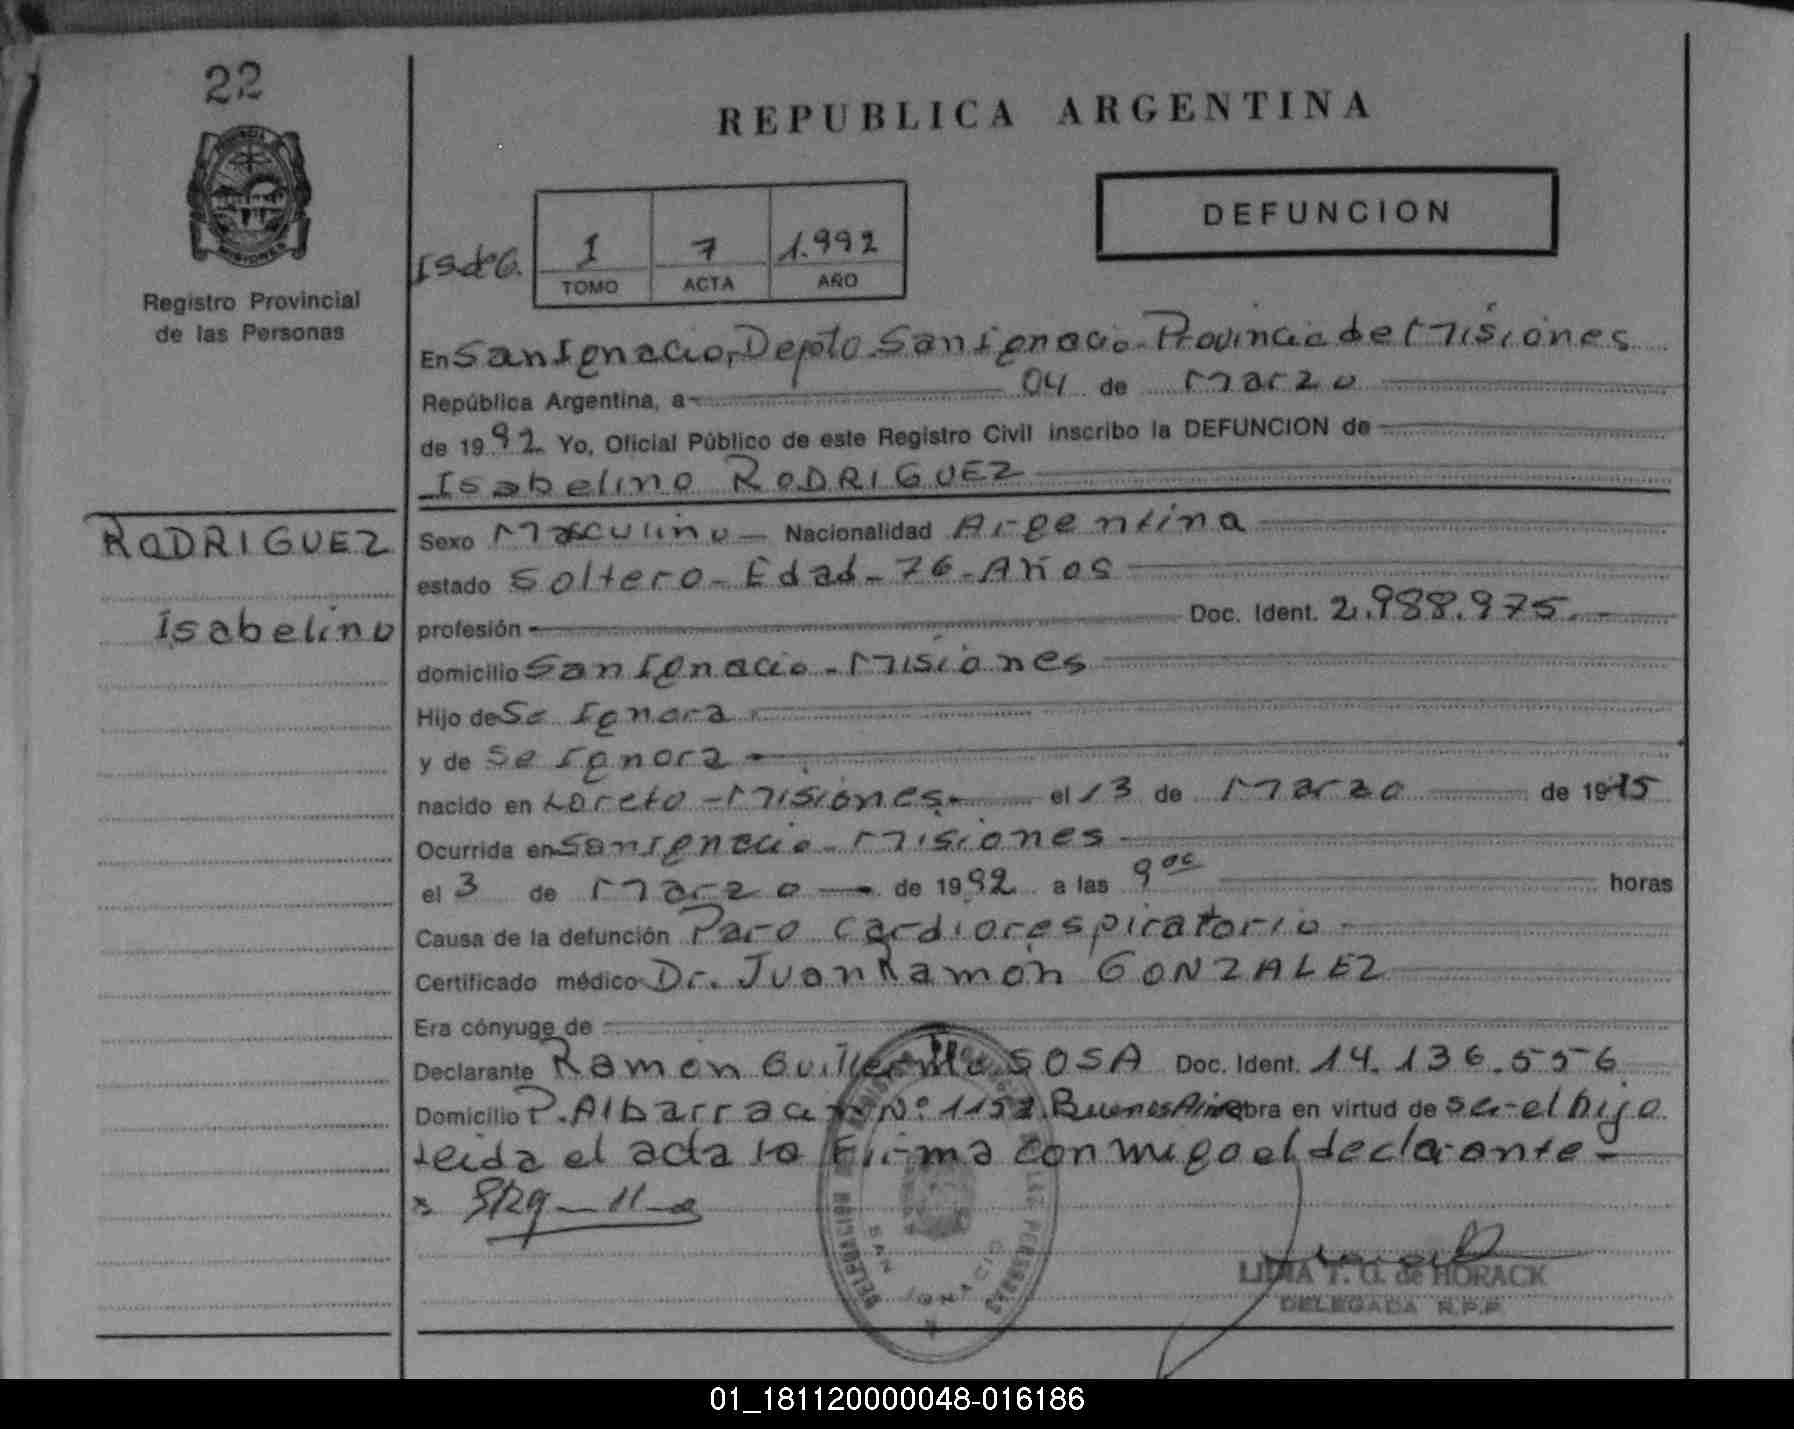 22
Registro Provincial
de las Personas
REPUBLICA ARGENTINA
DEFUNCION
Is de G. 1 7 1.992
TOMO ACTA AÑO
En San Ignacio, Depto San Ignacio. Provincia de Misiones
República Argentina, a 04 de Marzo
de 1992 Yo, Oficial Público de este Registro Civil inscribo la DEFUNCION de
Isabelino RODRIGUEZ
RODRIGUEZ
Isabelino
Sexo Masculino Nacionalidad Argentina
estado Soltero - Edad - 76 - Años
profesión Doc. Ident. 2.988.975.
domicilio San Ignacio - Misiones
Hijo de Se Ignora
y de Se Ignora
nacido en Loreto - Misiones. el 13 de Marzo de 1915
Ocurrida en San Ignacio - Misiones
el 3 de Marzo de 1992 a las 9 horas
Causa de la defunción Paro cardiorespiratorio
Certificado médico Dr. Juan Ramón GONZALEZ
Era cónyuge de
Declarante Ramón Guillermo SOSA Doc. Ident. 14.136.556
Domicilio P. Albarracin Nº 1152. Buenos Aires obra en virtud de ser el hijo
Leida el acta la Firma conmigo el declarante -
DELEGACION
SAN IGNACIO
DE LAS PERSONAS
LIDIA T. G. de HORACK
DELEGADA R.P.P.
01_181120000048-016186